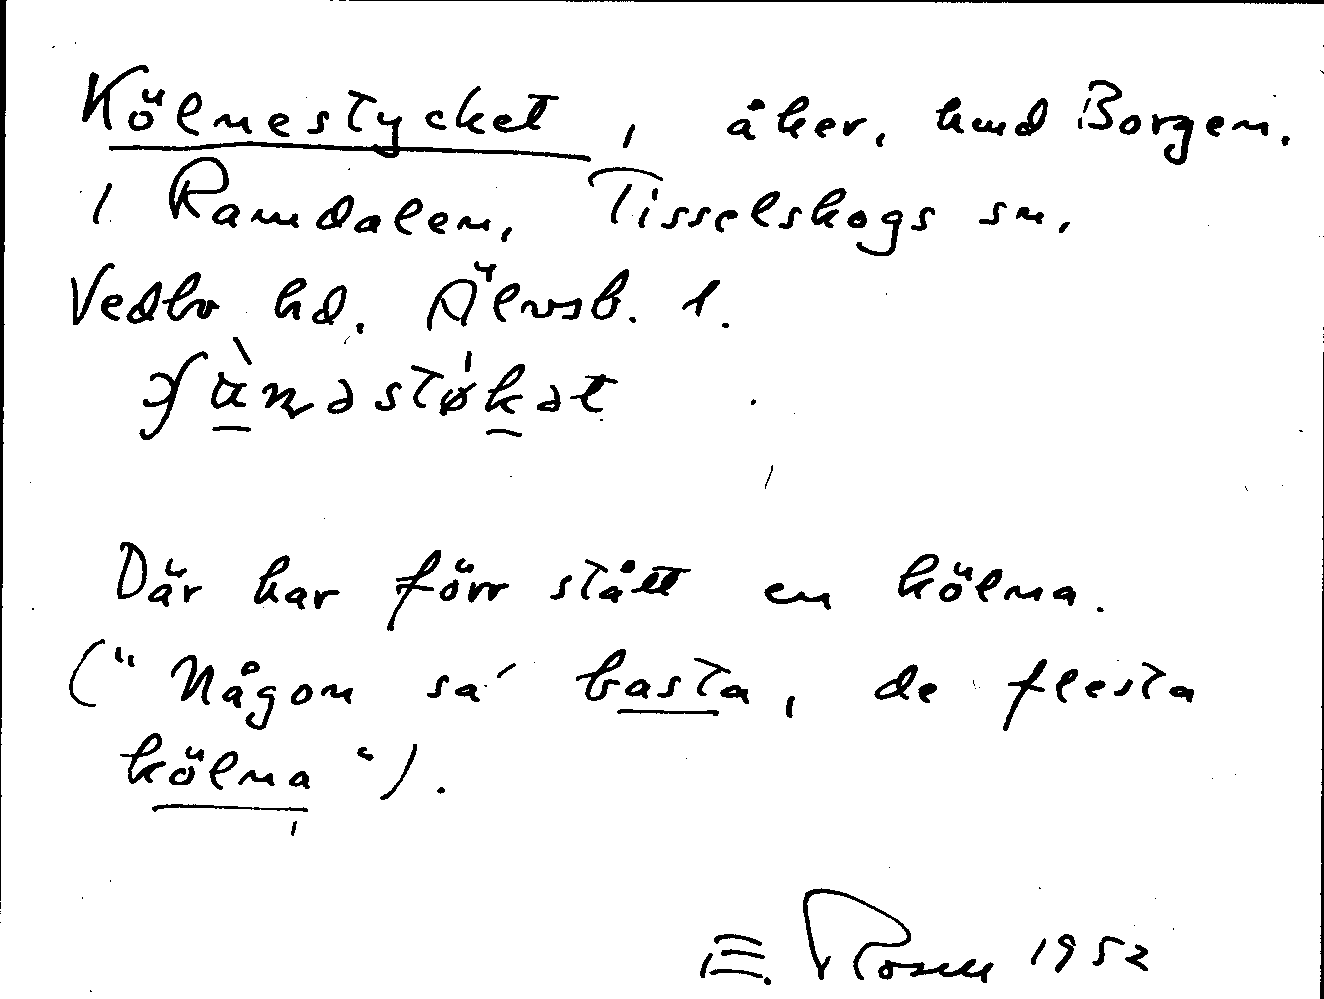 Kölnestycket, åker, hmd Borgen.
i Ramdalen, Tisselskogs sn,
Vedbo hd. Älvsb. l.
Där har förr stått en kölna.
("Någon sa' basta, de flesta
kölna").
E. Rosell 1952